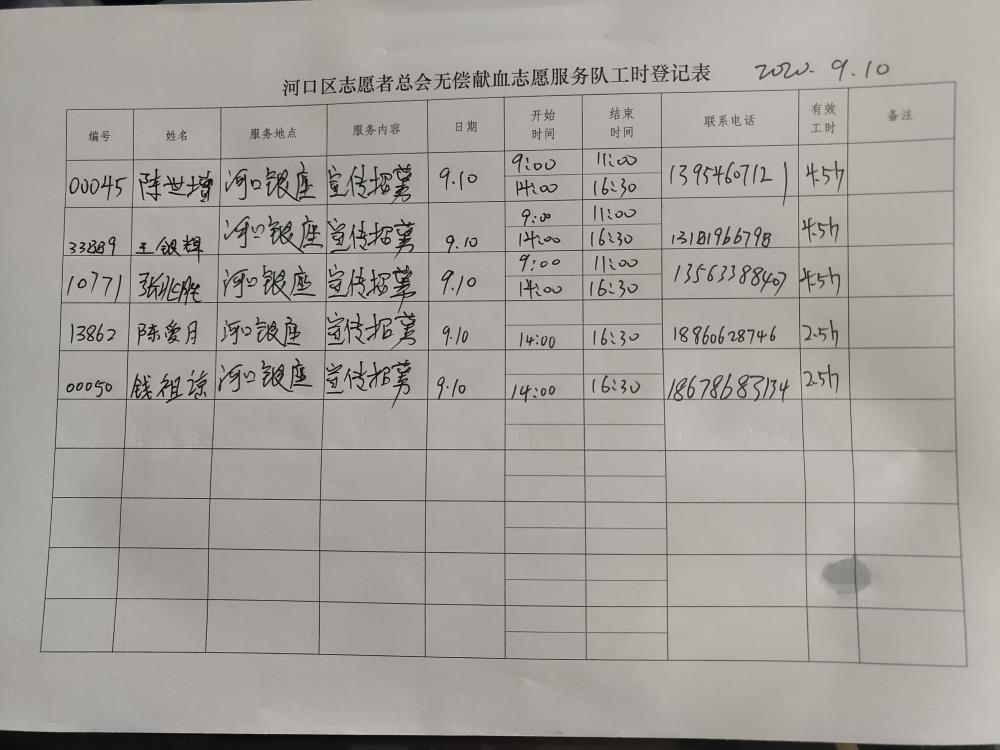 河口区志愿者总会无偿献血志愿服务队工时登记表 2020. 9.10
编号 姓名 服务地点 服务内容 日期 开始时间 结束时间 联系电话 有效工时 备注
00045 陈世增 河口银座 宣传招募 9.10 9:00 11:00 13954607121 4.5h
14:00 16:30
33889 王银辉 河口银座 宣传招募 9.10 9:00 11:00 13181966798 4.5h
14:00 16:30
10771 张兆胜 河口银座 宣传招募 9.10 9:00 11:00 13563388407 4.5h
14:00 16:30
13862 陈爱月 河口银座 宣传招募 9.10 14:00 16:30 18860628746 2.5h
00050 钱祖谅 河口银座 宣传招募 9.10 14:00 16:30 18678683134 2.5h